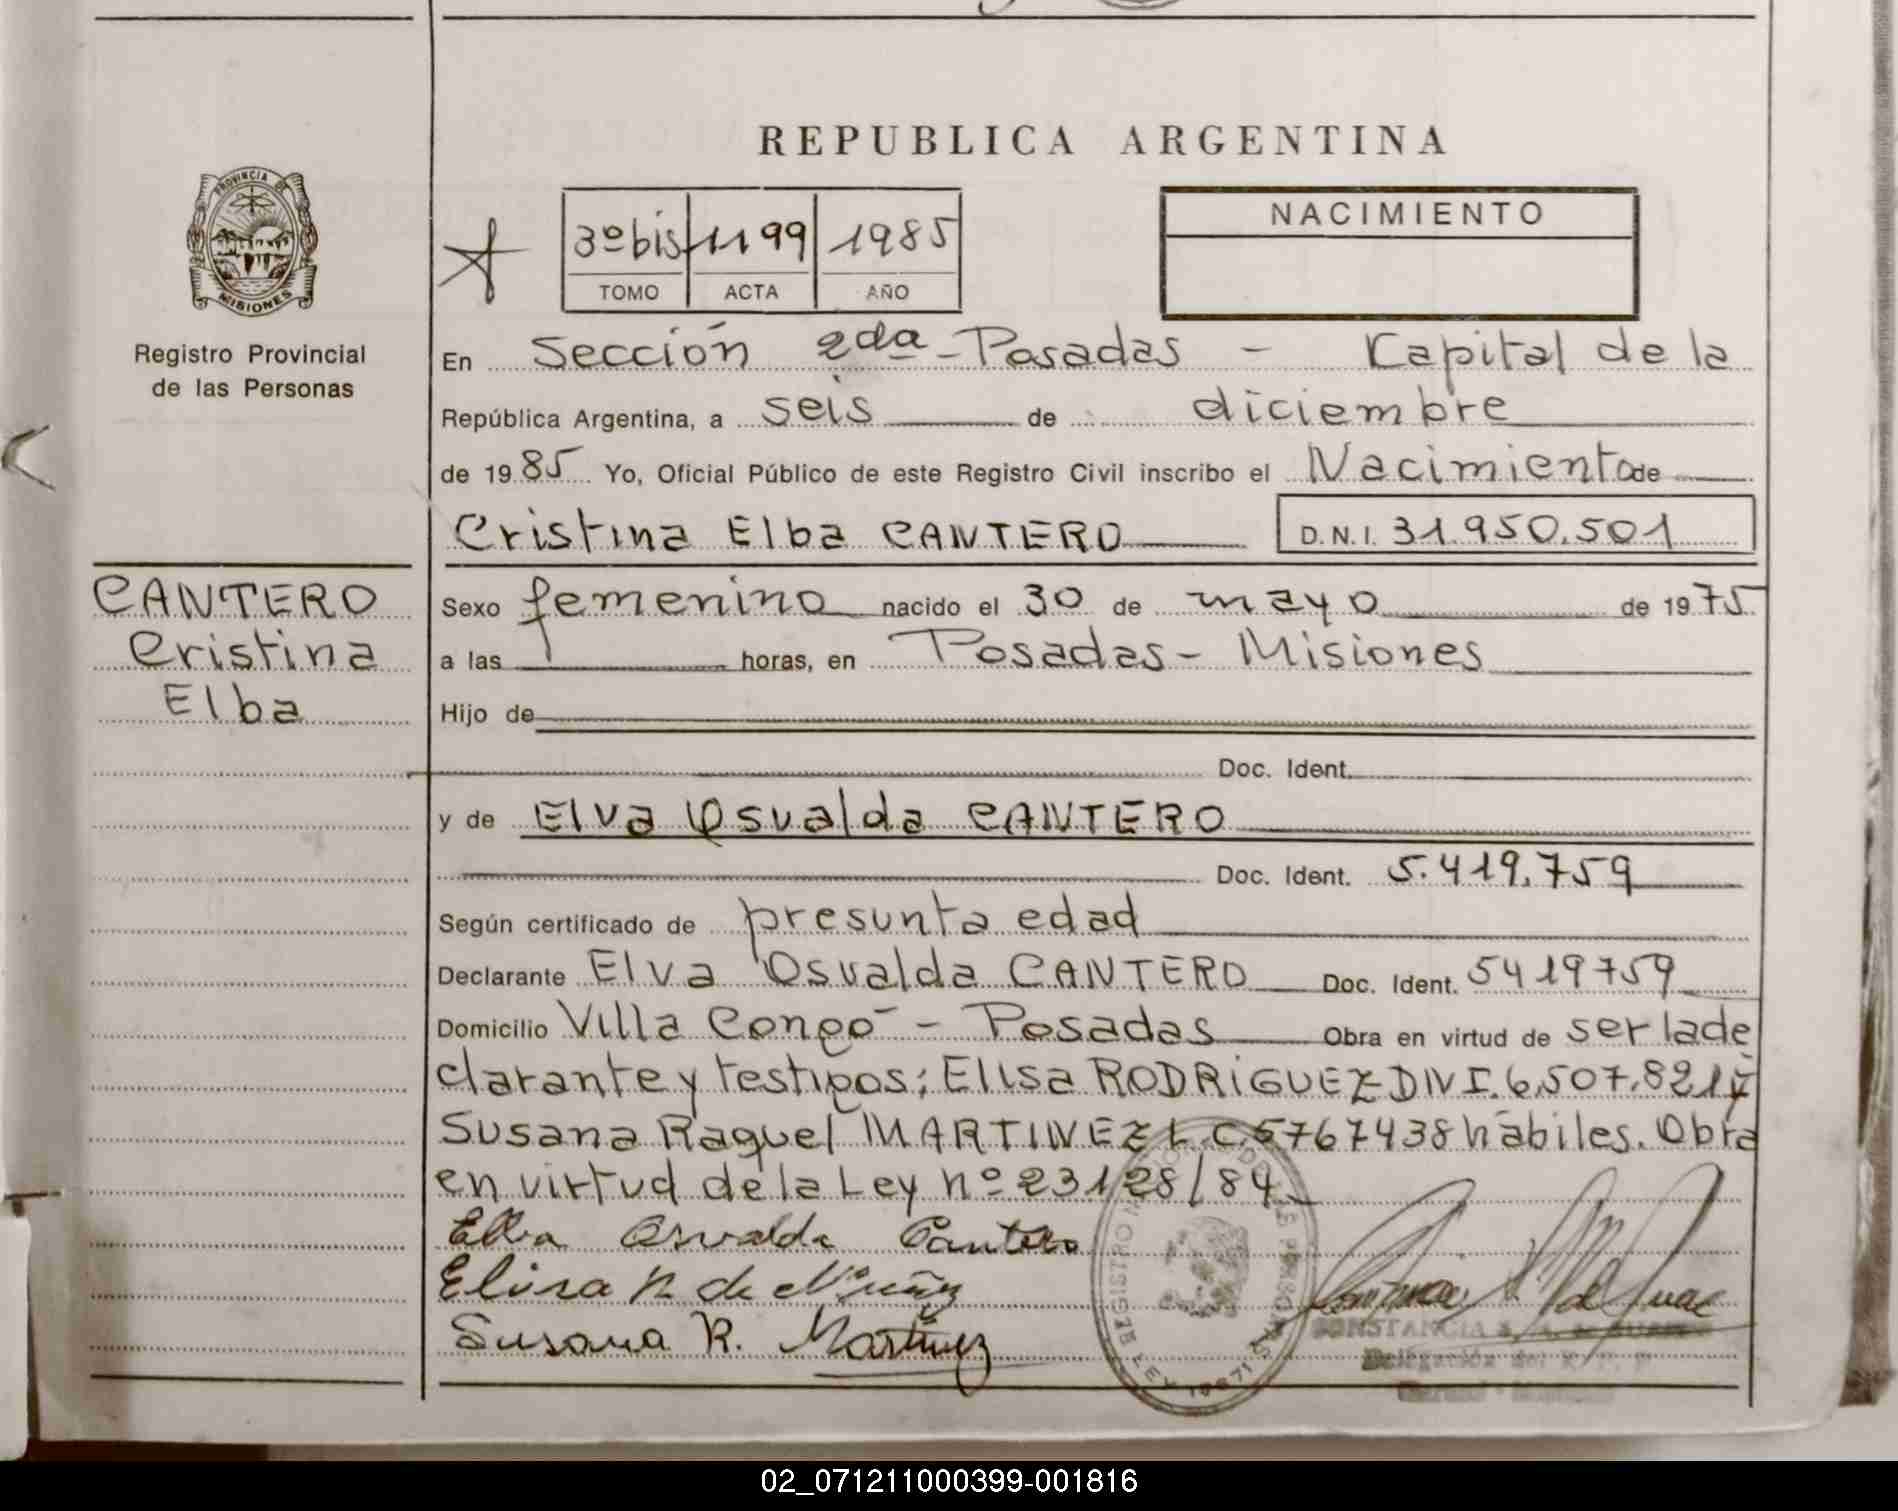 REPUBLICA ARGENTINA
PROVINCIA DE
MISIONES
Registro Provincial
de las Personas
3º bis 1199 1985
TOMO ACTA AÑO
NACIMIENTO
En Sección 2da - Posadas - Capital de la
República Argentina, a seis de diciembre
de 1985 Yo, Oficial Público de este Registro Civil inscribo el Nacimiento de
Cristina Elba CANTERO D.N.I. 31.950.501
CANTERO
Cristina
Elba
Sexo femenino nacido el 30 de mayo de 1975
a las horas, en Posadas - Misiones
Hijo de
Doc. Ident.
y de Elva Osvalda CANTERO
Doc. Ident. 5.419.759
Según certificado de presunta edad
Declarante Elva Osvalda CANTERO Doc. Ident. 5419759
Domicilio Villa Congó - Posadas Obra en virtud de ser la de
clarante y testigos: Elisa RODRIGUEZ DNI. 6.507.821 y
Susana Raquel MARTINEZ L.C. 5767438 hábiles. Obra
en virtud de la Ley nº 23128/84
Elba Osvalda Cantero
Elisa R de Nuñez
Susana R. Martinez
CONSTANCIA
Delegación del
02_071211000399-001816